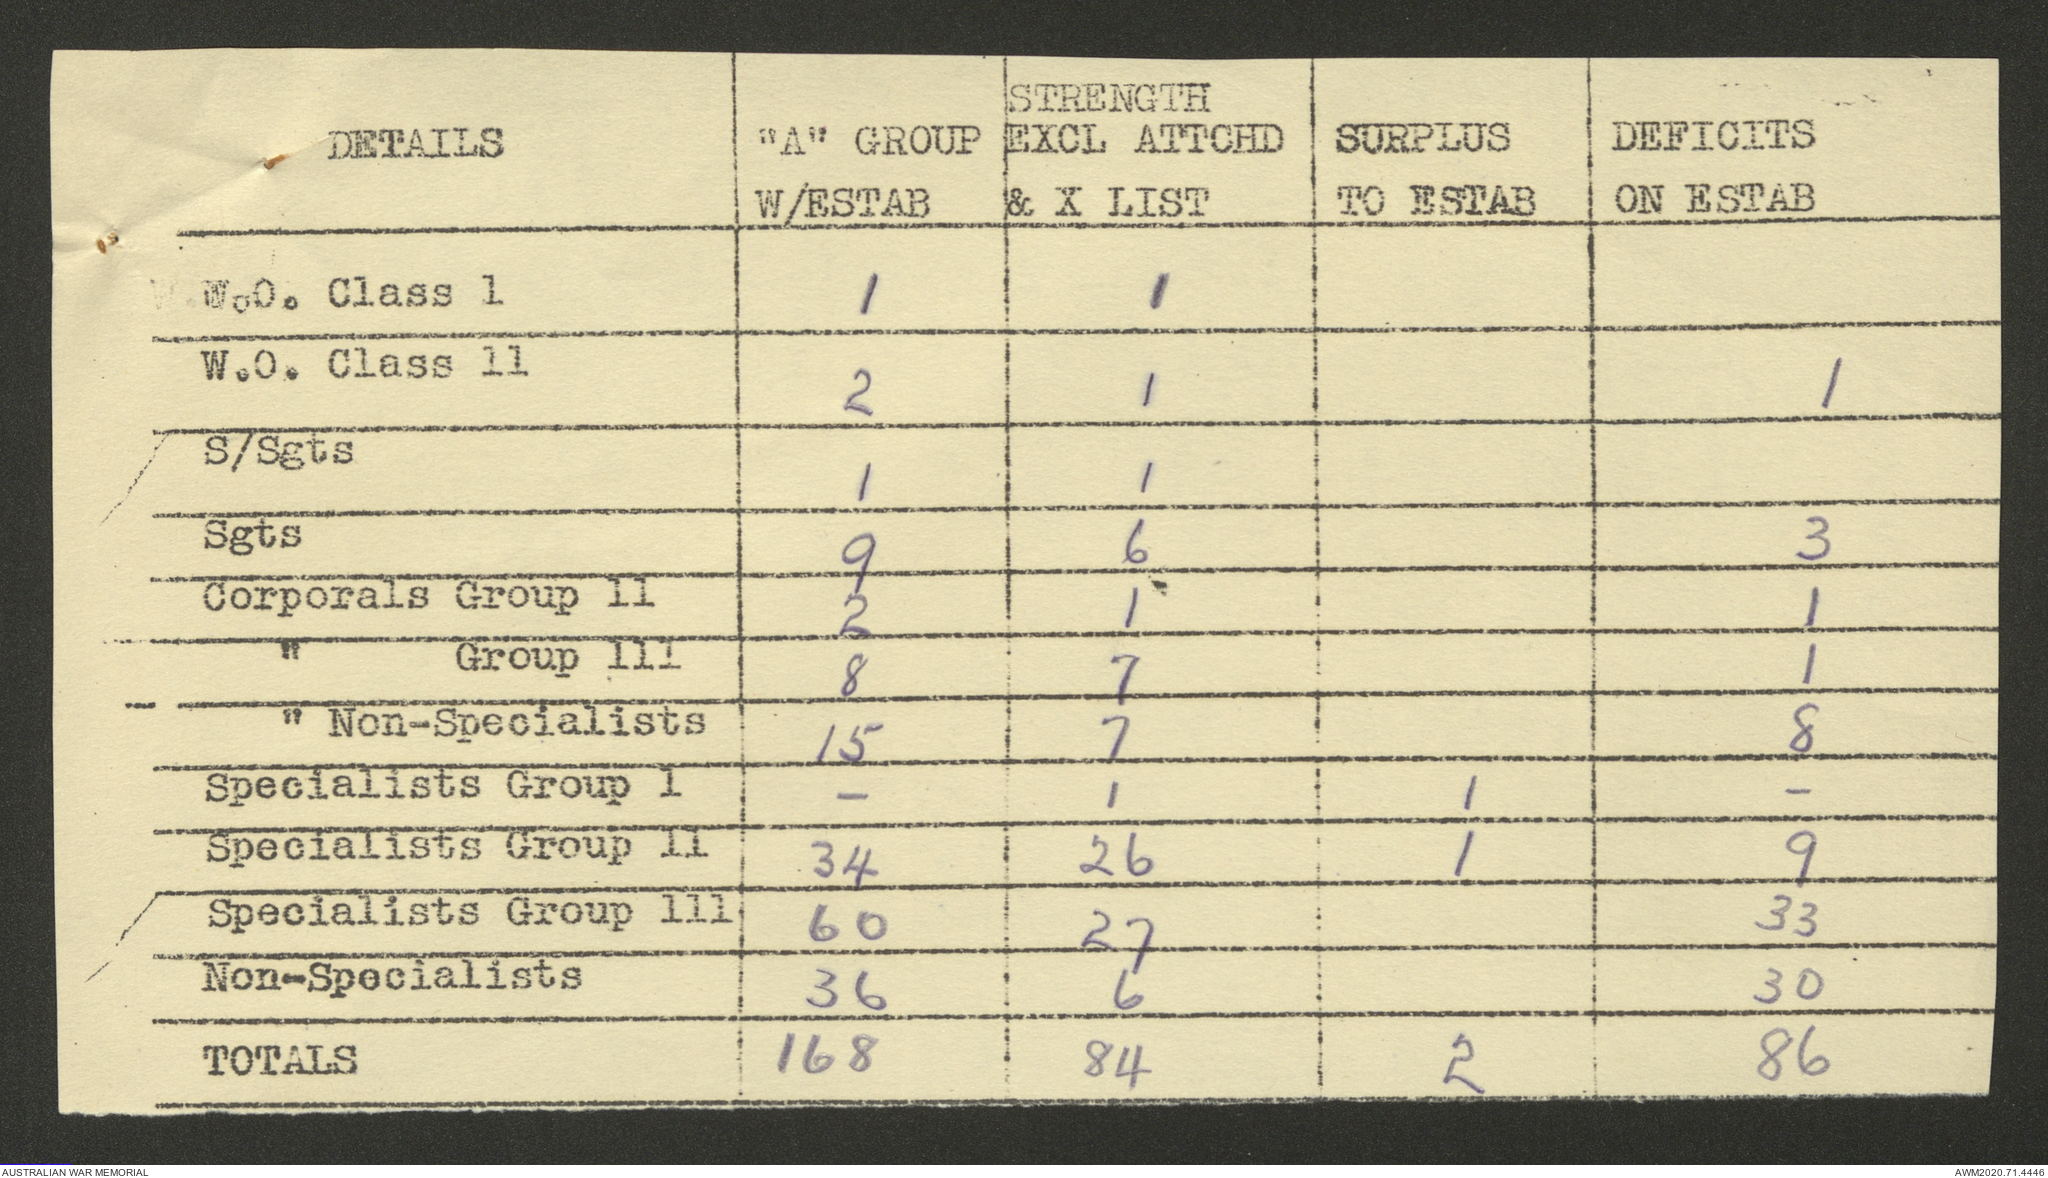 STRENGTH
DETAILS "A" GROUP EXCL ATTCHD SURPLUS DEFICITS
W/ESTAB & X LIST TO ESTAB ON ESTAB
W.O. Class 1 1 1
W.O. Class 11 2 1 1
S/Sgts 1 1
Sgts 9 6 3
Corporals Group 11 2 1 1
" Group 111 8 7 1
" Non-Specialists 15 7 8
Specialists Group 1 - 1 1 -
Specialists Group 11 34 26 1 9
Specialists Group 111 60 27 33
Non-Specialists 36 6 30
TOTALS 168 84 2 86
AUSTRALIAN WAR MEMORIAL AWM2020.71.4446